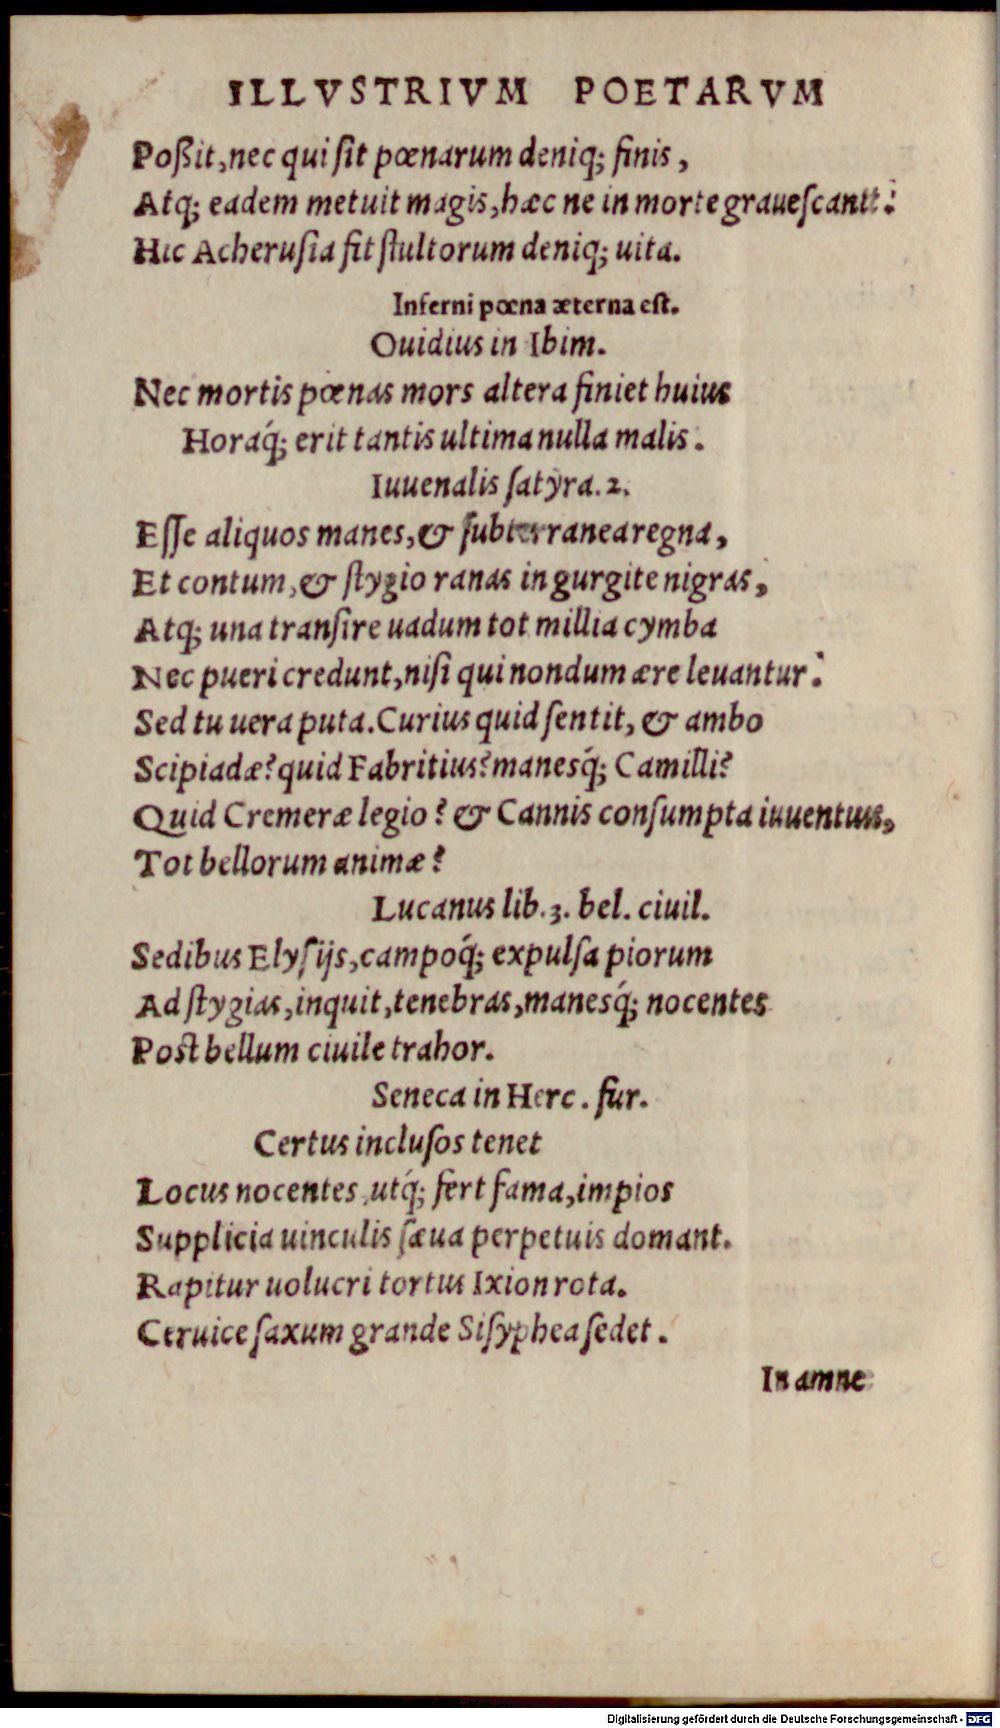 ILLVSTRIVM POETARVM
Poßit, nec qui ſit pœnarum deniq; finis,
Atq; eadem metuit magis, hæc ne in morte graueſcant:
Hic Acheruſia fit ſtultorum deniq; uita.
Inferni pœna æterna eſt.
Ouidius in Ibim.
Nec mortis pœnas mors altera finiet huius
Horaq́; erit tantis ultima nulla malis.
Iuuenalis ſatyra. 2.
Eſſe aliquos manes, & ſubterranea regna,
Et contum, & ſtygio ranas in gurgite nigras,
Atq; una tranſire uadum tot millia cymba
Nec pueri credunt, niſi qui nondum ære leuantur:
Sed tu uera puta. Curius quid ſentit, & ambo
Scipiadæ? quid Fabritius? manesq́; Camilli?
Quid Cremeræ legio? & Cannis conſumpta iuuentus,
Tot bellorum animæ?
Lucanus lib. 3. bel. ciuil.
Sedibus Elyſijs, campoq́; expulſa piorum
Ad ſtygias, inquit, tenebras, manesq́; nocentes
Poſt bellum ciuile trahor.
Seneca in Herc. fur.
Certus incluſos tenet
Locus nocentes, utq́; fert fama, impios
Supplicia uinculis ſæua perpetuis domant.
Rapitur uolucri tortus Ixion rota.
Ceruice ſaxum grande Siſyphea ſedet.
In amne
Digitalisierung gefördert durch die Deutsche Forschungsgemeinschaft - DFG